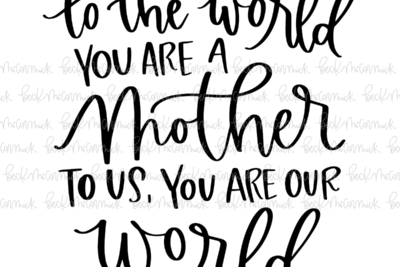 to the world
YOU ARE A
Mother
TO US, YOU ARE OUR
World